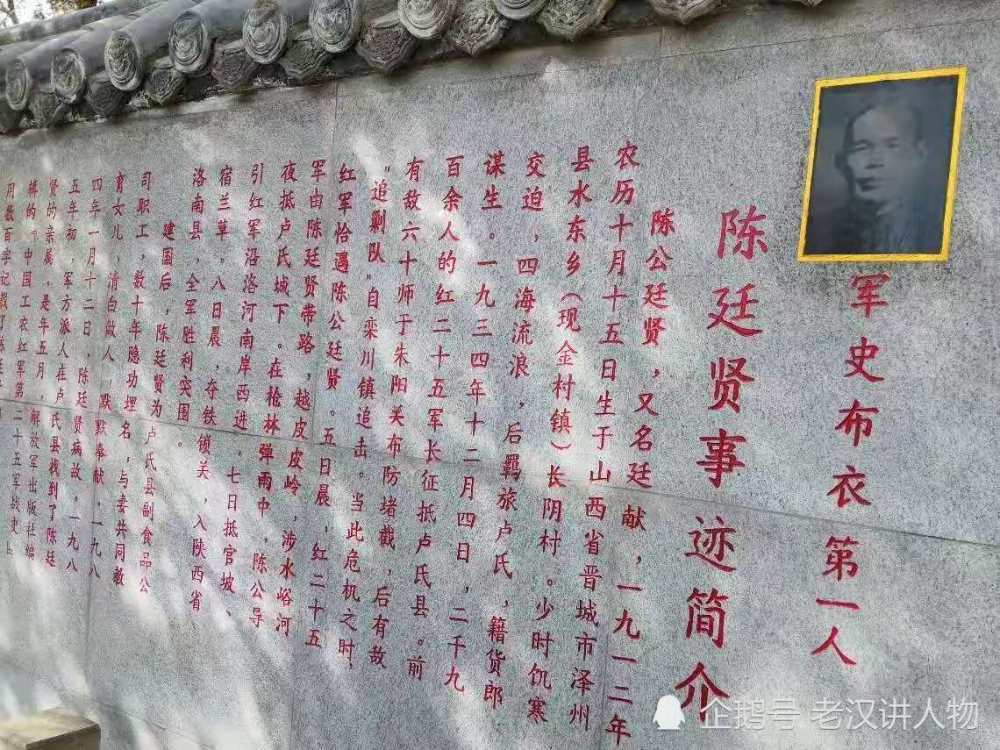 军史布衣第一人
陈廷贤事迹简介
陈公廷贤，又名廷献，一九一二年
农历十月十五日生于山西省晋城市泽州
县水东乡（现金村镇）长阴村。少时饥寒
交迫，四海流浪，后羁旅卢氏，籍货郎
谋生。一九三四年十二月四日，二千九
百余人的红二十五军长征抵卢氏县。前
有敌六十师于朱阳关布防堵截，后有敌
“追剿队”自栾川镇追击。当此危机之时，
红军恰遇陈公廷贤。五日晨，红二十五
军由陈廷贤带路，越皮皮岭，涉水峪河
夜抵卢氏城下。在枪林弹雨中，陈公导
引红军沿洛河南岸西进。七日抵官坡、
宿兰草，八日晨，夺铁锁关，入陕西省
洛南县，全军胜利突围。
建国后，陈廷贤为卢氏县副食品公
司职工，数十年隐功埋名，与妻共同教
育女儿，清白做人，默默奉献，一九八
四年一月十二日，陈廷贤病故。一九八
五年初，军方派人在卢氏县找到了陈廷
贤的亲属，是年五月，解放军出版社编
辑的《中国工农红军第二十五军战史》
用数百字记载了
企鹅号 老汉讲人物